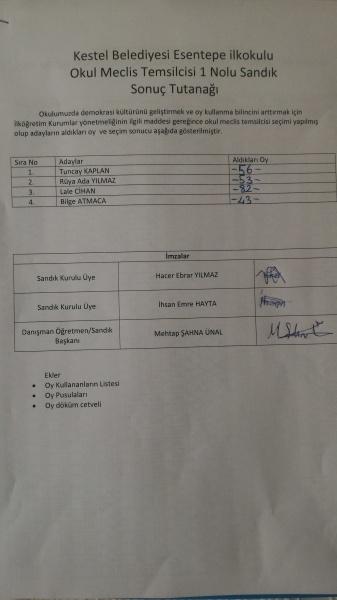 Kestel Belediyesi Esentepe ilkokulu
Okul Meclis Temsilcisi 1 Nolu Sandık
Sonuç Tutanağı
Okulumuzda demokrasi kültürünü geliştirmek ve oy kullanma bilincini arttırmak için
ilköğretim Kurumlar yönetmeliğinin ilgili maddesi gereğince okul meclis temsilcisi seçimi yapılmış
olup adayların aldıkları oy ve seçim sonucu aşağıda gösterilmiştir.
Sıra No Adaylar Aldıkları Oy
1. Tuncay KAPLAN -56-
2. Rüya Ada YILMAZ -53-
3. Lale CİHAN -82-
4. Bilge ATMACA -43-
İmzalar
Sandık Kurulu Üye Hacer Ebrar YILMAZ
Sandık Kurulu Üye İhsan Emre HAYTA
Danışman Öğretmen/Sandık
Başkanı
Mehtap ŞAHNA ÜNAL
Ekler
• Oy Kullananların Listesi
• Oy Pusulaları
• Oy döküm cetveli